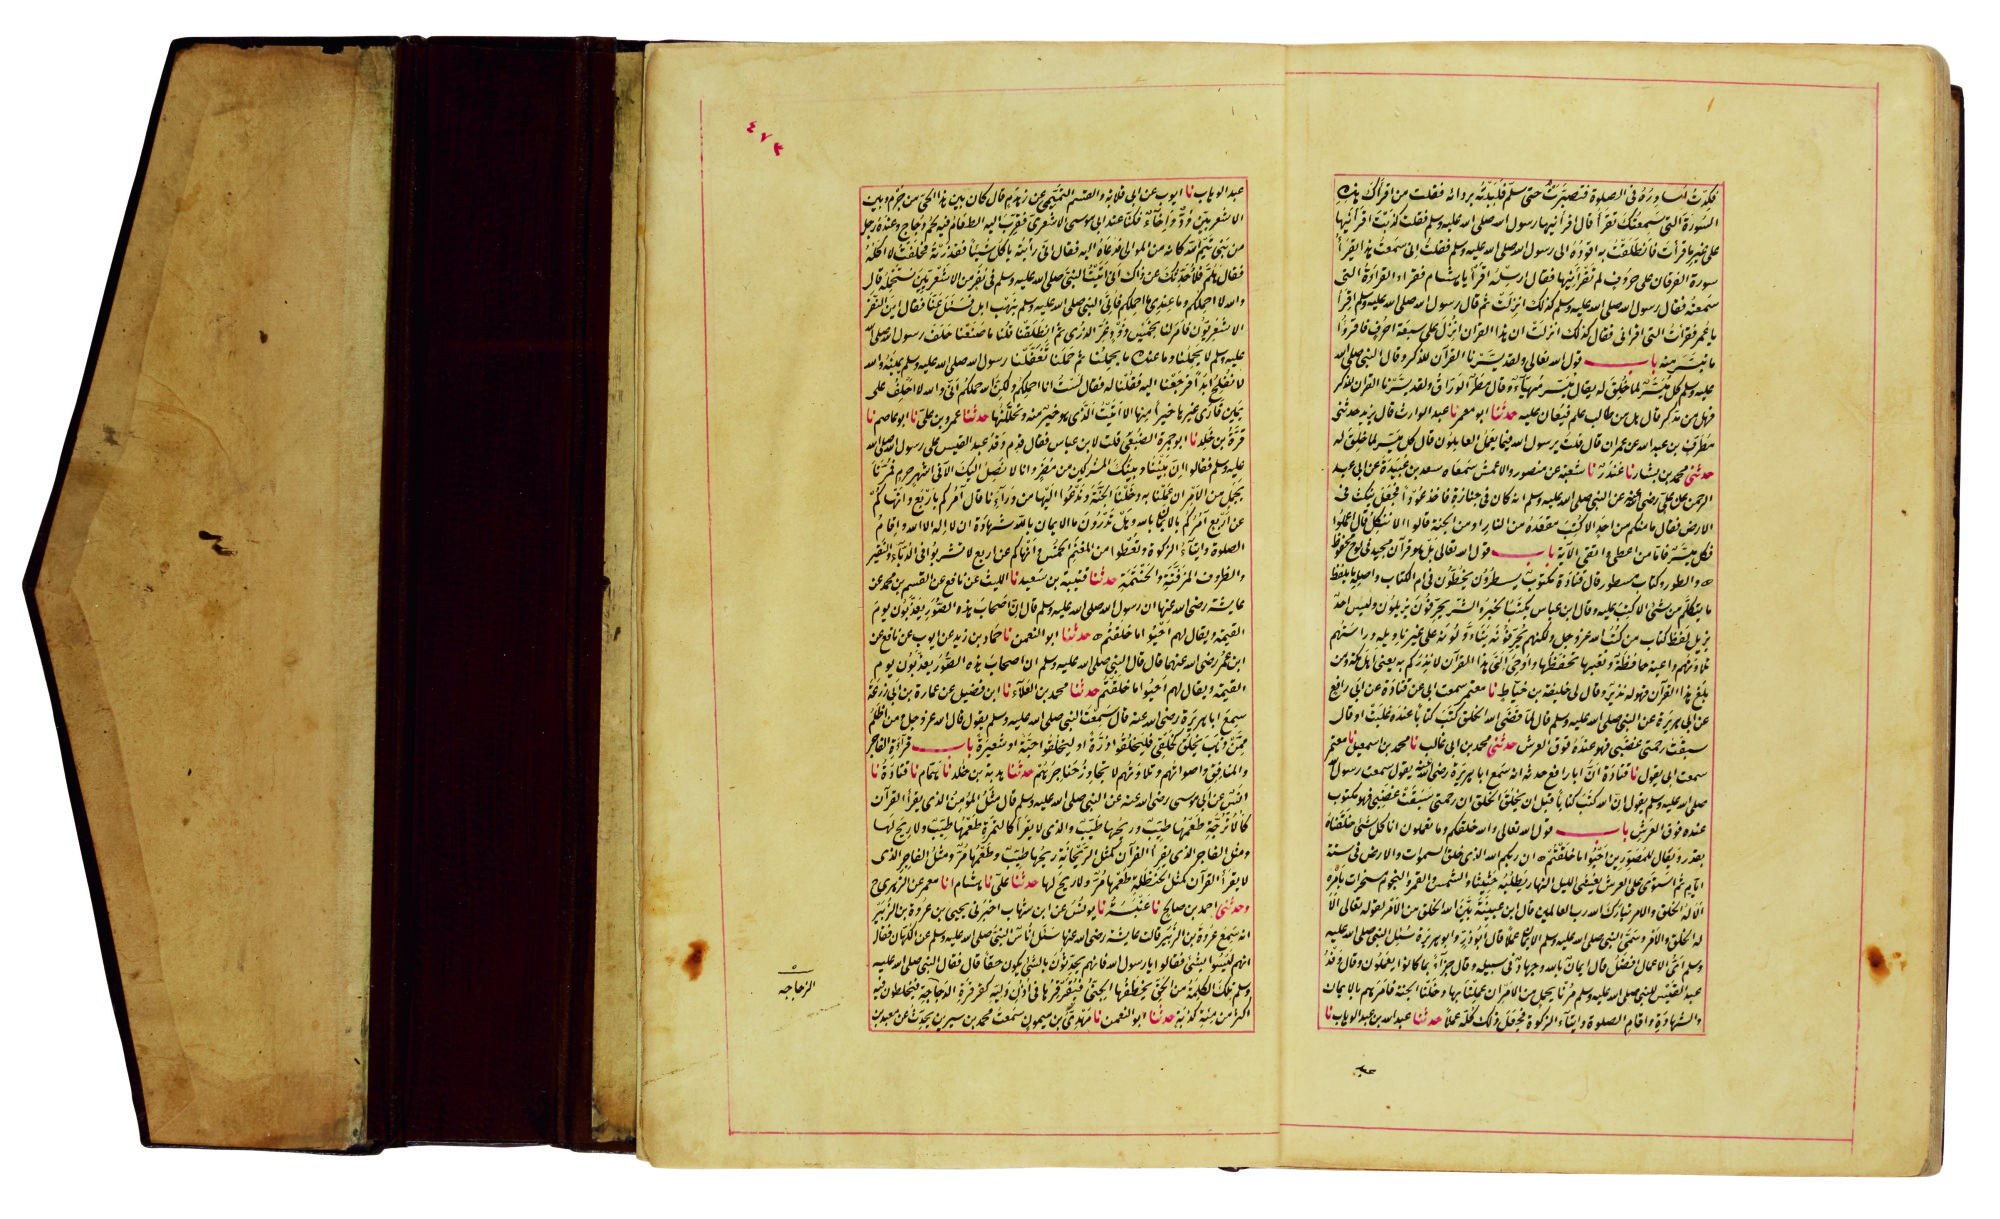 فكدت اساوره فى الصلوة فتصبرت حتى سلم فلببته بردائه فقلت من اقرأك هذه
السورة التى سمعتك تقرأ قال اقرأنيها رسول الله صلى الله عليه وسلم فقلت كذبت اقرأنيها
على غير ما قرأت فانطلقت به اقوده الى رسول الله صلى الله عليه وسلم فقلت انى سمعت هذا يقرأ
سورة الفرقان على حروف لم تقرأنيها فقال ارسله اقرأ يا هشام فقراء القراءة التى
سمعته فقال رسول الله صلى الله عليه وسلم كذلك انزلت ثم قال رسول الله صلى الله عليه وسلم اقرأ
يا عمر فقرأت التى اقرأنى فقال كذلك انزلت ان هذا القران انزل على سبعة احرف فاقرؤا
ما تيسر منه باب قول الله تعالى ولقد يسرنا القرآن للذكر وقال النبى صلى الله
عليه وسلم كل ميسر لما خلق له يقال ميسر مهيأ وقال مطر الوراق ولقد يسرنا القرآن للذكر
فهل من مدكر قال هل من طالب علم فيعان عليه حدثنا ابو معمر نا عبد الوارث قال يزيد حدثنى
مطرف بن عبد الله عن عمران قال قلت يرسول الله فيما يعمل العاملون قال كل ميسر لما خلق له
حدثنى محمد بن بشار نا غندر نا شعبة عن منصور والاعمش سمعا سعد بن عبيدة عن ابى عبد
الرحمن عن على رضى الله عنه عن النبى صلى الله عليه وسلم انه كان فى جنازة فاخذ عودا فجعل ينكت فى
الارض فقال ما منكم من احد الا كتب مقعده من النار او من الجنة قالوا الا نتكل قال اعملوا
فكل ميسر فاما من اعطى واتقى الآية باب قول الله تعالى بل هو قرآن مجيد فى لوح محفوظ
والطور وكتاب مسطور قال قتادة مكتوب يسطرون يخطون فى ام الكتاب واصله ما يلفظ
ما يتكلم من شئ الا كتب عليه وقال ابن عباس يكتب الخير والشر يحرفون يزيلون وليس احد
يزيل لفظ كتاب من كتب الله عز وجل ولكنهم يحرفونه يتأولونه على غير تاويله دراستهم
تلاوتهم واعية حافظة وتعيها تحفظها واوحى الى هذا القرآن لانذركم به يعنى اهل مكة ومن
بلغ هذا القرآن فهو له نذير وقال لى خليفة بن خياط نا معتمر سمعت ابى عن قتادة عن ابى رافع
عن ابى هريرة عن النبى صلى الله عليه وسلم قال لما قضى الله الخلق كتب كتابا عنده غلبت او قال
سبقت رحمتى غضبى فهو عنده فوق العرش حدثنى محمد بن ابى غالب نا محمد بن اسمعيل نا معتمر
سمعت ابى يقول نا قتادة ان ابا رافع حدثه انه سمع ابا هريرة رضى الله عنه يقول سمعت رسول الله
صلى الله عليه وسلم يقول ان الله كتب كتابا قبل ان يخلق الخلق ان رحمتى سبقت غضبى فهو مكتوب
عنده فوق العرش باب قول الله تعالى والله خلقكم وما تعملون انا كل شئ خلقناه
بقدر ويقال للمصورين احيوا ما خلقتم ان ربكم الله الذى خلق السموات والارض فى ستة
ايام ثم استوى على العرش يغشى الليل النهار يطلبه حثيثا والشمس والقمر والنجوم مسخرات بامره
الا له الخلق والامر تبارك الله رب العالمين قال ابن عيينة بين الله الخلق من الامر لقوله تعالى الا
له الخلق والامر وسمى النبى صلى الله عليه وسلم الايمان عملا قال ابو ذر وابو هريرة سئل النبى صلى الله عليه
وسلم اى الاعمال افضل قال ايمان بالله وجهاد فى سبيله وقال جزاء بما كانوا يعملون وقال وفد
عبد القيس للنبى صلى الله عليه وسلم مرنا بجمل من الامر ان عملنا بها دخلنا الجنة فامرهم بالايمان
والشهادة واقام الصلوة وايتاء الزكوة فجعل ذلك كله عملا حدثنا عبد الله بن عبد الوهاب نا
عبد
٤٧٣
عبد الوهاب نا ايوب عن ابى قلابة والقسم التميمى عن زهدم قال كان بين هذا الحى من جرم وبين
الاشعريين ود واخاء فكنا عند ابى موسى الاشعرى فقرب اليه الطعام فيه لحم دجاج وعنده رجل
من بنى تيم الله كانه من الموالى فدعاه اليه فقال انى رأيته ياكل شيئا فقذرته فحلفت لا آكله
فقال هلم فلاحدثك عن ذاك انى اتيت النبى صلى الله عليه وسلم فى نفر من الاشعريين نستحمله قال
والله لا احملكم وما عندى ما احملكم فاتى النبى صلى الله عليه وسلم بنهب ابل فسئل عنا فقال اين النفر
الاشعريون فامر لنا بخمس ذود غر الذرى ثم انطلقنا قلنا ما صنعنا حلف رسول الله صلى الله
عليه وسلم لا يحملنا وما عنده ما يحملنا ثم حملنا تغفلنا رسول الله صلى الله عليه وسلم يمينه والله
لا نفلح ابدا فرجعنا اليه فقلنا له فقال لست انا احملكم ولكن الله حملكم انى والله لا احلف على
يمين فارى غيرها خيرا منها الا اتيت الذى هو خير منه وتحللتها حدثنا عمرو بن على نا ابو عاصم نا
قرة بن خلد نا ابو جمرة الضبعى قلت لابن عباس فقال قدم وفد عبد القيس على رسول الله صلى الله
عليه وسلم فقالوا ان بيننا وبينك المشركين من مضر وانا لا نصل اليك الا فى اشهر حرم فمرنا
بجمل من الامر ان عملنا به دخلنا الجنة وندعوا اليها من وراءنا قال آمركم باربع وانهاكم
عن اربع آمركم بالايمان بالله وهل تدرون ما الايمان بالله شهادة ان لا اله الا الله واقام
الصلوة وايتاء الزكوة وتعطوا من المغنم الخمس وانهاكم عن اربع لا تشربوا فى الدباء والنقير
والظروف المزفتة والحنتمة حدثنا قتيبة بن سعيد نا الليث عن نافع عن القسم بن محمد عن
عايشة رضى الله عنها ان رسول الله صلى الله عليه وسلم قال ان اصحاب هذه الصور يعذبون يوم
القيمة ويقال لهم احيوا ما خلقتم حدثنا ابو النعمن نا حماد بن زيد عن ايوب عن نافع عن
ابن عمر رضى الله عنهما قال قال النبى صلى الله عليه وسلم ان اصحاب هذه الصور يعذبون يوم
القيمة ويقال لهم احيوا ما خلقتم حدثنا محمد بن العلاء نا ابن فضيل عن عمارة بن ابى زرعة
سمع ابا هريرة رضى الله عنه قال سمعت النبى صلى الله عليه وسلم يقول قال الله عز وجل من اظلم
ممن ذهب يخلق كخلقى فليخلقوا ذرة او ليخلقوا حبة او شعيرة باب قراءة الفاجر
والمنافق واصواتهم وتلاوتهم لا تجاوز حناجرهم حدثنا هدبة بن خلد نا همام نا قتادة نا
انس عن ابى موسى رضى الله عنه عن النبى صلى الله عليه وسلم قال مثل المؤمن الذى يقرأ القرآن
كالاترجة طعمها طيب وريحها طيب والذى لا يقرأ كالتمرة طعمها طيب ولا ريح لها
ومثل الفاجر الذى يقرأ القرآن كمثل الريحانة ريحها طيب وطعمها مر ومثل الفاجر الذى
لا يقرأ القرآن كمثل الحنظلة طعمها مر ولا ريح لها حدثنا على نا هشام انا معمر عن الزهرى ح
وحدثنى احمد بن صالح نا عنبسة نا يونس عن ابن شهاب اخبرنى يحيى بن عروة بن الزبير
انه سمع عروة بن الزبير قالت عايشة رضى الله عنها سئل اناس النبى صلى الله عليه وسلم عن الكهان فقال
انهم ليسوا بشئ فقالوا يا رسول الله فانهم يحدثون بالشئ يكون حقا قال فقال النبى صلى الله عليه
وسلم تلك الكلمة من الحق يخطفها الجنى فيقرقرها فى اذن وليه كقرقرة الدجاجة فيخلطون فيه
اكثر من مئة كذبة حدثنا ابو النعمن نا مهدى بن ميمون سمعت محمد بن سيرين يحدث عن معبد بن
الزجاجه